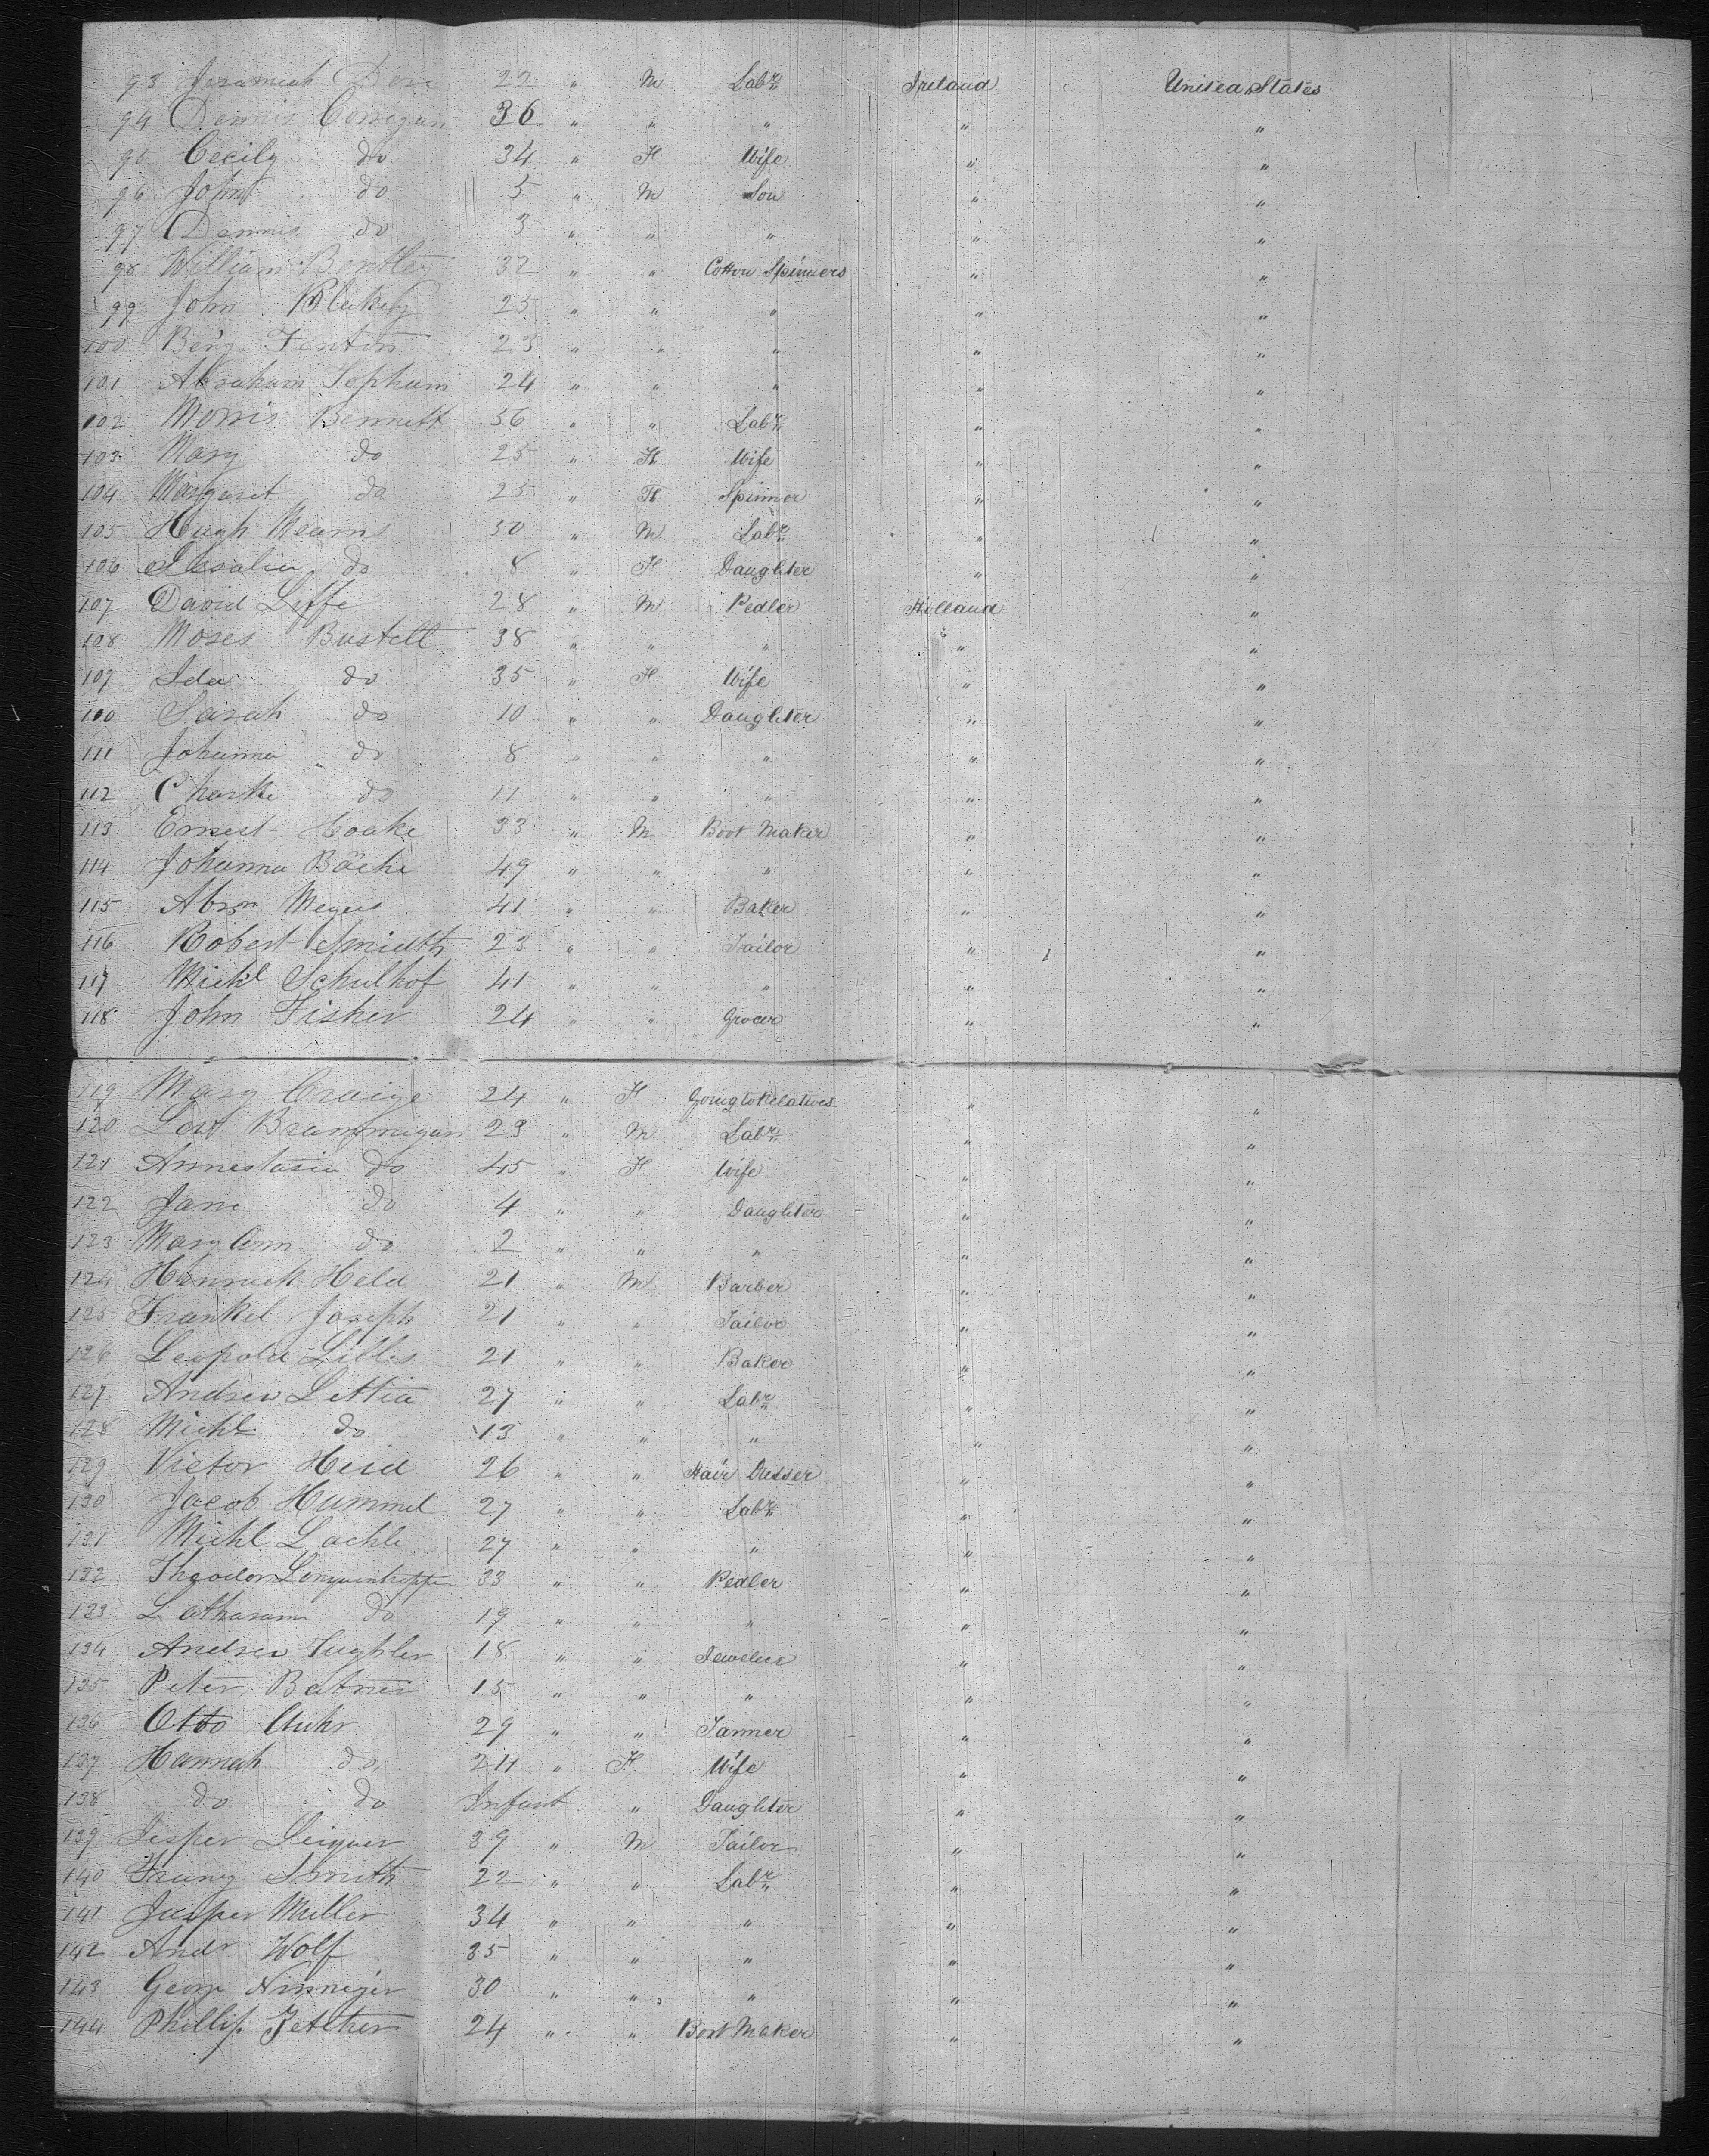 93 Jeramiah Dore 22 " M Labr Ireland United States
94 Dennis Corregan 36 " " " " "
95 Cecily do 34 " F Wife " "
96 John do 5 " M Son " "
97 Dennis do 3 " " " " "
98 William Bentley 32 " " Cotton Spinners " "
99 John Blakely 25 " " " " "
100 Benj Fenton 23 " " " " "
101 Abraham Tepham 24 " " " " "
102 Morris Bennett 36 " " Labr " "
103 Mary do 25 " F Wife " "
104 Margaret do 25 " F Spinner " "
105 Hugh Mearns 30 " M Labr " "
106 do 8 " F Daughter " "
107 David Liffe 28 " M Pedler Holland "
108 Moses Bustell 38 " " " " "
109 Ida do 35 " F Wife " "
110 Sarah do 10 " " Daughter " "
111 Johanna do 8 " " " " "
112 do 11 " " " " "
113 Ernest Hoake 33 " M Boot Maker " "
114 Johanna Bäcke 49 " " " " "
115 Abrm Meyers 41 " " Baker " "
116 Robert Smiuth 23 " " Tailor " "
117 Michl Schulhof 41 " " " " "
118 John Fisher 24 " " Grocer " "
119 Mary Craige 24 " F Going to Relatives " "
120 Brammigan 29 " M Labr " "
121 Annestasia do 45 " F Wife " "
122 Jane do 4 " " Daughter " "
123 Mary Ann do 2 " " " " "
124 Held 21 " M Barber " "
125 Frankel Joseph 21 " " Tailor " "
126 Leopold Lilles 21 " " Baker " "
127 Andrew Lettia 27 " " Labr " "
128 Michl do 13 " " " " "
129 Victor Heid 26 " " Hair Dresser " "
130 Jacob Hummel 27 " " Labr " "
131 Michl Lachle 27 " " " " "
132 Theodor 33 " " Pedler " "
133 do 19 " " " " "
134 Andrew Tughler 18 " " Jeweler " "
135 Peter Batner 15 " " " " "
136 Otto Auhr 29 " " Tanner " "
137 Hannah do 24 " F Wife " "
138 do do Infant " Daughter " "
139 Jesper 39 " M Tailor " "
140 Smith 22 " " Labr " "
141 Jusper Muller 34 " " " " "
142 Andr Wolf 35 " " " " "
143 George Ninneger 30 " " " " "
144 Phillip Fetther 24 " " Boot Maker " "